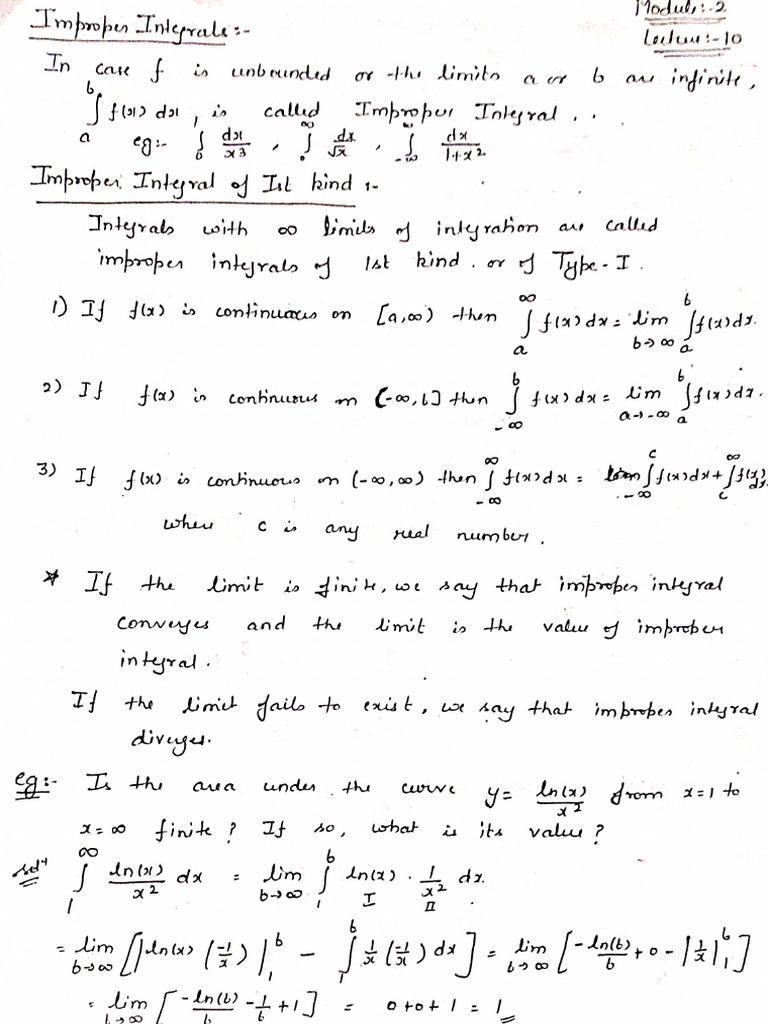 Improper Integrals:-
Module:-2
Lecture:-10
In case f is unbounded or the limits a or b are infinite,
∫_a^b f(x) dx, is called Improper Integral..
eg:- ∫_0 dx/x3 , ∫^∞ dx/√x , ∫_-∞^∞ dx/1+x2
Improper Integral of Ist kind :-
Integrals with ∞ limits of integration are called
improper integrals of 1st kind. or of Type-I.
1) If f(x) is continuous on [a,∞) then ∫_a^∞ f(x) dx = lim_{b→∞} ∫_a^b f(x) dx.
2) If f(x) is continuous on (-∞,b] then ∫_-∞^b f(x) dx = lim_{a→-∞} ∫_a^b f(x) dx.
3) If f(x) is continuous on (-∞,∞) then ∫_-∞^∞ f(x) dx = ∫_-∞^c f(x) dx + ∫_c^∞ f(x) dx.
where c is any real number.
* If the limit is finite, we say that improper integral
converges and the limit is the value of improper
integral.
If the limit fails to exist, we say that improper integral
diverges.
eg:- Is the area under the curve y = ln(x)/x² from x=1 to
x=∞ finite? If so, what is its value?
solⁿ ∫_1^∞ ln(x)/x² dx = lim_{b→∞} ∫_1^b ln(x) · 1/x² dx.
I II
= lim_{b→∞} [|ln(x) (-1/x)|_1^b - ∫_1^b 1/x (-1/x) dx] = lim_{b→∞} [-ln(b)/b + 0 - |1/x|_1^b]
= lim_{b→∞} [-ln(b)/b - 1/b + 1] = 0+0+1 = 1